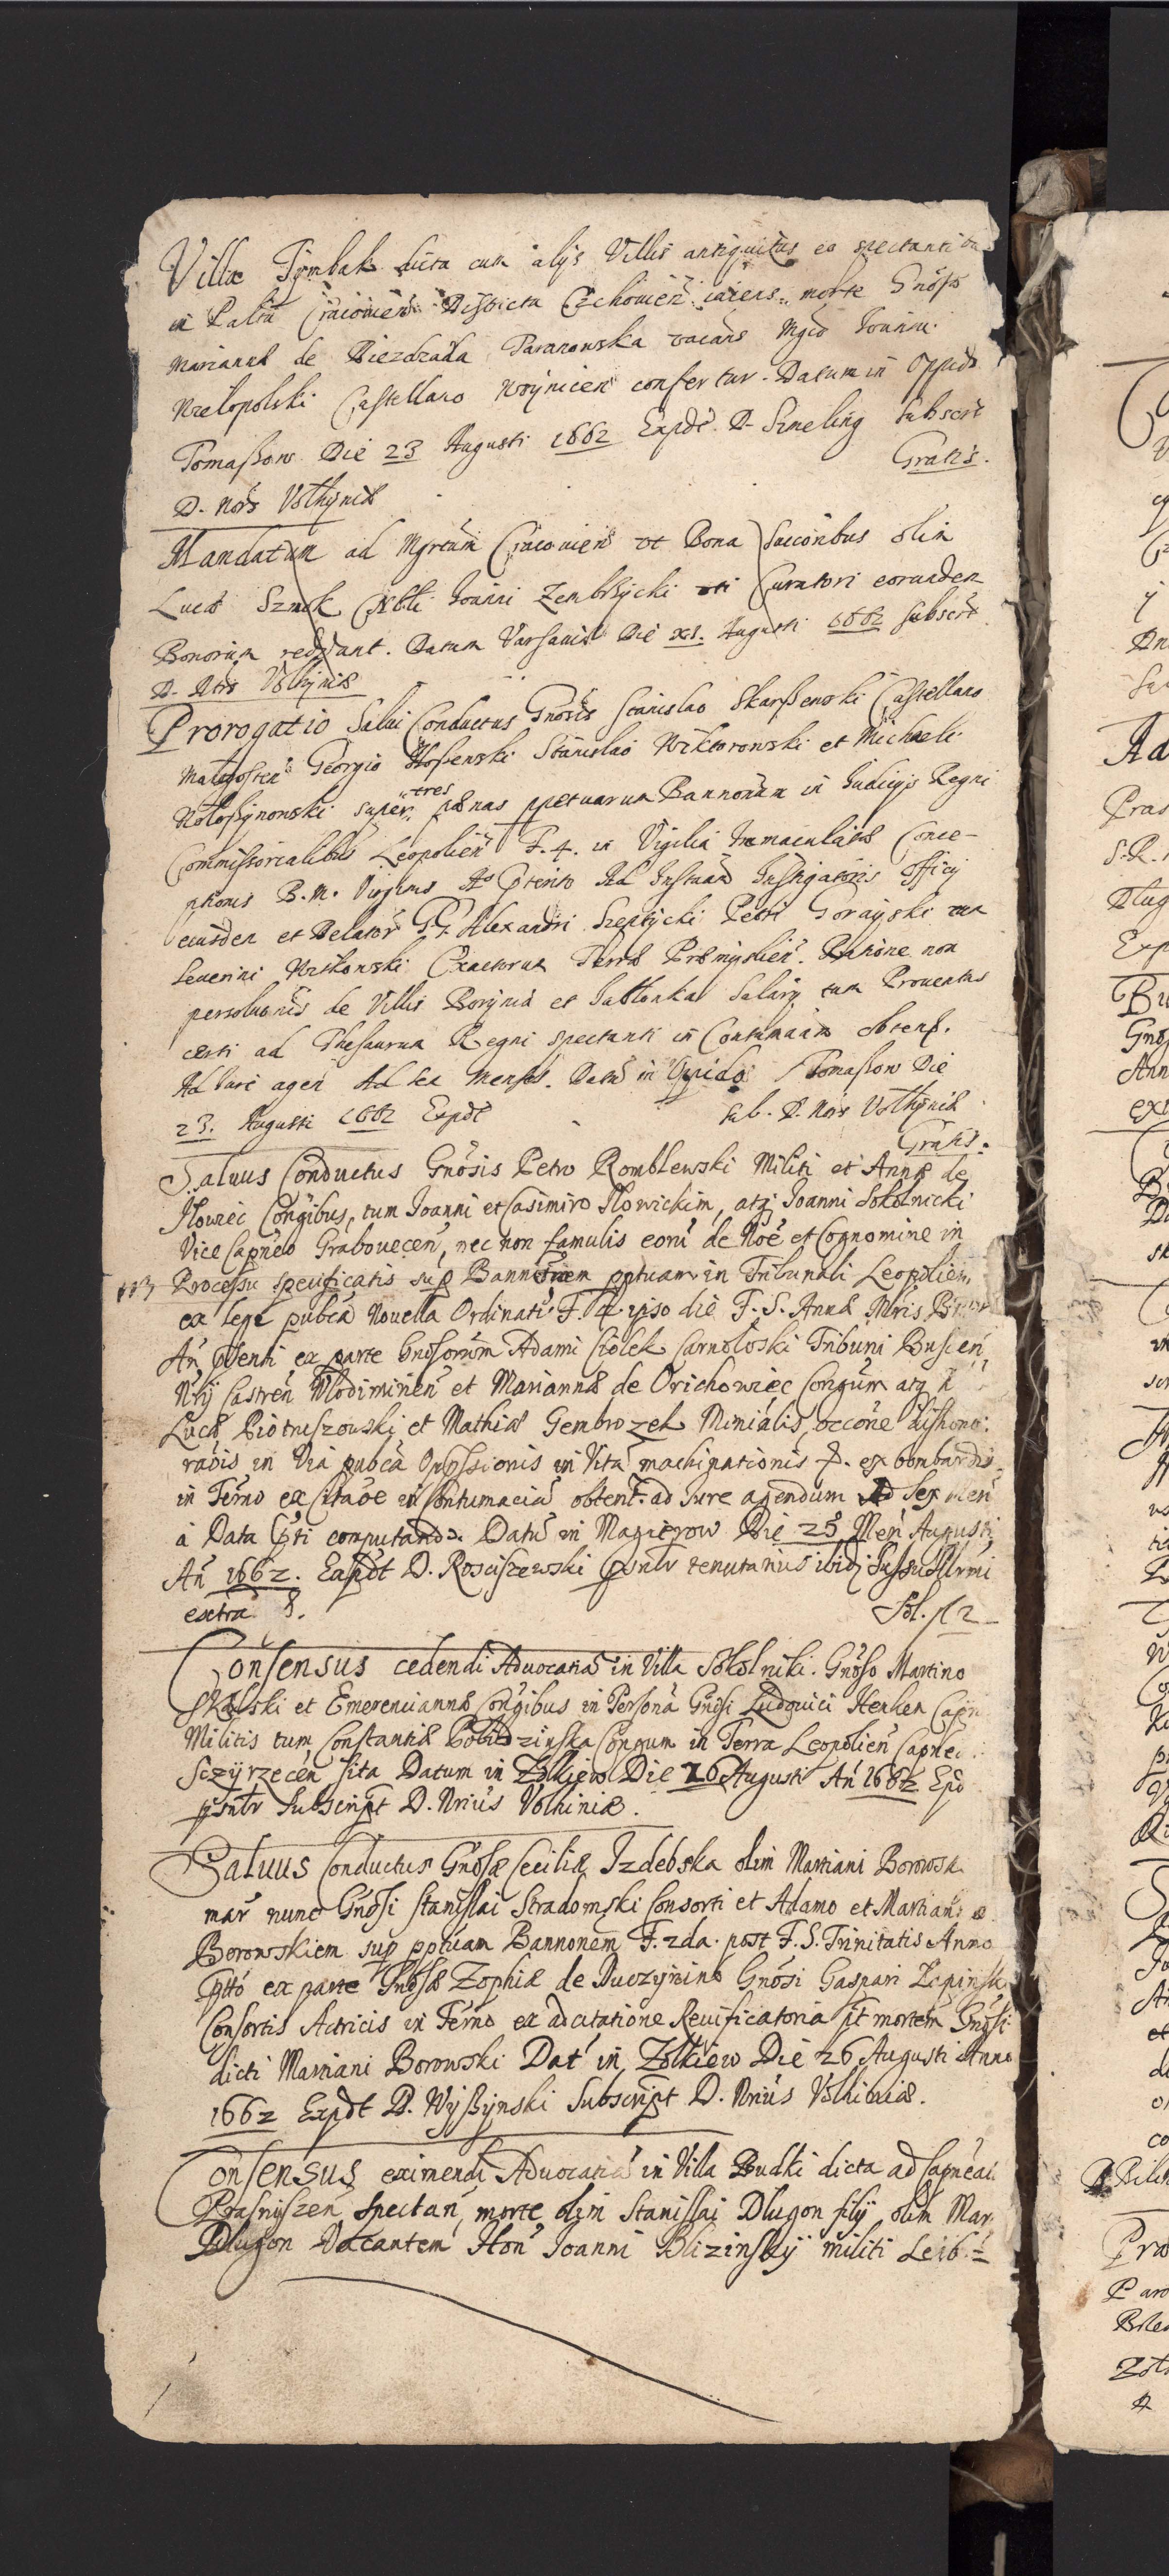 Villæ Tymbak dicta cum alijs Villis antiquitus eo spectantibus
in Palatu Cracovien Districtu Czchovien jacens morte Gnosæ
Mariannæ de Biezdziada Taranowska vacans Mgco Joanni
Wielopolski Castellano Woynicen confertur. Datum in Oppido
Tomaßow Die 23 Augusti 1662 Expdt D. Szmeling subscrt
D. Nots Volhyniæ Gratis.
Mandatum ad Mgrtum Cracovien ut Bona Succoribus olim
Lucæ Sznuk Nobli Joanni Zembrzycki uti Curatori eorundem
Bonorum reddant. Datum Varsaviæ Die XI. Augusti 1662 subscrt
D. Nots Volhyniæ
Prorogatio Salvi Conductus Gnosis Stanislao Skarßewski Castellano
Malogosten Georgio Stanislao Wiktorowski et Michaeli
Wołoßynowski super tres pænas ppetuarum Bannonum in Judicijs Regni
Commissorialibus Leopolien F. 4. in Vigilia Immaculatæ Conce-
ptionis B. M. Virginis Ao Pterito Ad Instam Instigatoris Officij
eiusdem et Delator GG. Alexandri Szeptycki Petri Gorayski
Severini Witkowski Exactorum Terræ Præmyslien. Ratione non
persolutionis de Villis Borynia et Jabłonka Salarij tum Proventus
certi ad Thesaurum Regni spectanti in Contumaciam obtent.
Ad Jure agen Ad sex Menses. Datu in Oppido Tomaßow Die
23. Augusti 1662 Expdt sub. D. Nots Volhyniæ
Gratis.
Salvus Conductus Gnosis Petro Romblewski Militi et Annæ de
Ilowiec Congibus, tum Joanni et Casimiro Ilowickim, atq Joanni Sokolnicki
Vice Capneo Grabovecen, nec non famulis eoru de Noe et Cognomine in
Processu specificatis sup Bannionem pptuam in Tribunali Leopolien
ex lege publca Novella Ordinati F. 4 ipso die F. S. Annæ Mris
An Psenti ex parte Gnosorum Adami Ciolek Carnoloski Tribuni Buscen
Nrij Castren Vlodimirien et Mariannæ de Orichowiec Congum atq
Lucæ Piotruszowski et Mathiæ Gembrozek Minialis occone
in Via publca Oppssionis in Vita machinationis ex bombardis
in Termo ex Citaoe in Contumaciã obtent. ad Jure agendum Ad Sex Men
à Data Pti computando. Datu in Magierow Die 25 Men Augusti
An 1662. Expdt D. Rosciszewski Psntr tenutarius ibid Jussu Illrmi
extra. Sol. fl 2
Consensus cedendi Advocatiæ in Villa Sokolniki. Gnoso Martino
Skalski et Emerenciannæ Congibus in Personã Gnosi Ludovici Henken
Militis tum Constantiæ Congum in Terra Leopolien Capnei
Sczyrzecen sita Datum in Zolkiew Die 26 Augusti An 1662 Expd
psntr Subscript D. Nrius Volhiniæ.
Salvus Conductus Gnosæ Ceciliæ Izdebska olim Martiani Borowski
nunc Gnosi Stanislai Stradomski Consorti et Adamo et Martiano
Borowskiem sup pptuam Bannonem F. 2da. post F. S. Trinitatis Anno
Ptto ex parte Gnosæ Zophiæ de Gnosi Gaspari
Consortis Actricis in Termo ex adcitatione Revificatoria pt mortem Gnosi
dicti Martiani Borowski Dat in Zolkiew Die 26 Augusti Anno
1662 Expdt D. Wyßynski Subscript D. Nrius Volhiniæ.
Consensus eximendi Advocatiã in Villa Budki dicta ad Capneatu
Prasnyszen spectan, morte olim Stanislai Dlugon filij olim Mar
Dlugon Vacantem Hon Joanni Blizinskij militi Leib.=